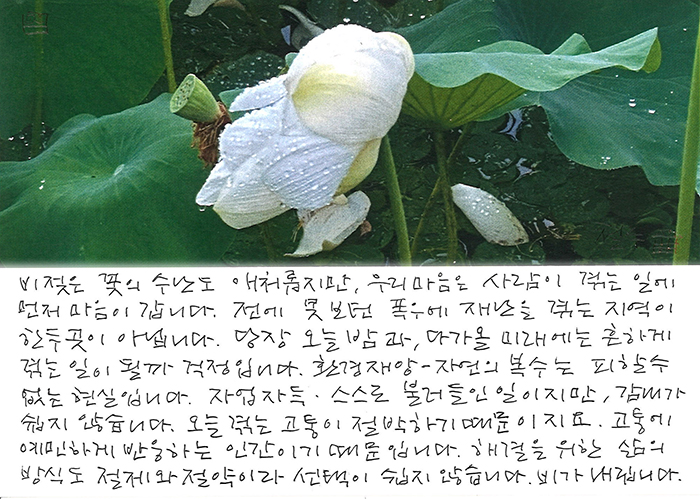 비젖은 꽃의 수난도 애처롭지만, 우리마음은 사람이 겪는 일에
먼저 마음이 갑니다. 전에 못보던 폭우에 재난을 겪는 지역이
한두곳이 아닙니다. 당장 오늘밤과, 다가올 미래에는 흔하게
겪는 일이 될까 걱정입니다. 환경재앙-자연의 복수는 피할수
없는 현실입니다. 자업자득·스스로 불러들인 일이지만, 감내가
쉽지 않습니다. 오늘 겪는 고통이 절박하기 때문이지요. 고통에
예민하게 반응하는 인간이기 때문입니다. 해결을 위한 삶의
방식도 절제와 절약이라 선택이 쉽지 않습니다. 비가 내립니다.